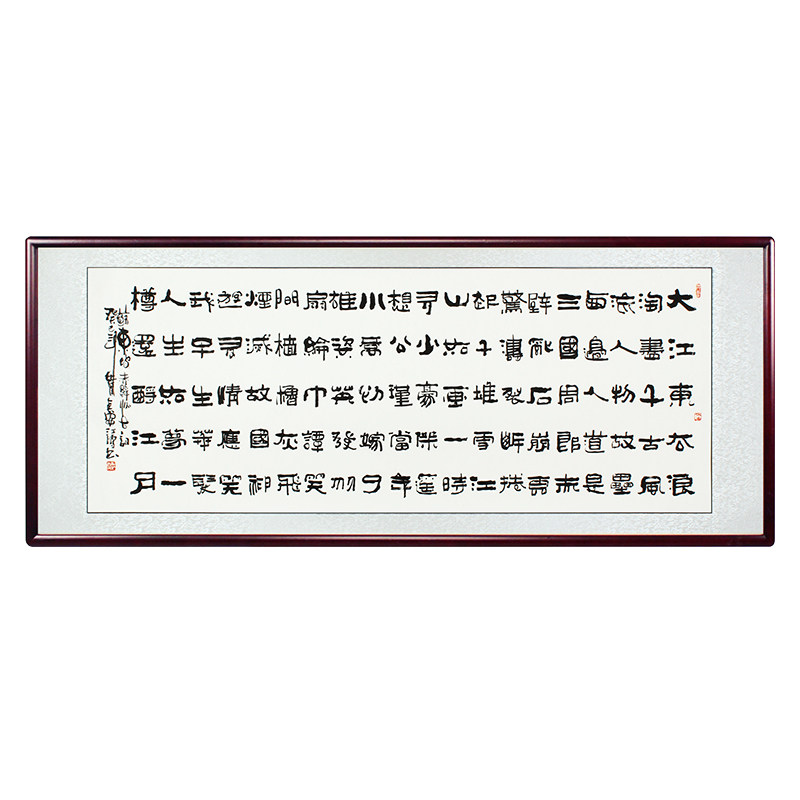 大江東去浪
淘盡千古風
流人物故壘
西邊人道是
三國周郎赤
壁亂石崩雲
驚濤裂斷捲
起千堆雪江
山如畫一時
多少豪傑遥
想公瑾當年
小喬初嫁了
雄姿英發羽
扇綸巾譚笑
間檣櫓灰飛
煙滅故國神
遊多情應笑
我早生華髮
人生如夢一
樽還酹江月
蘇東坡赤壁懷古詞